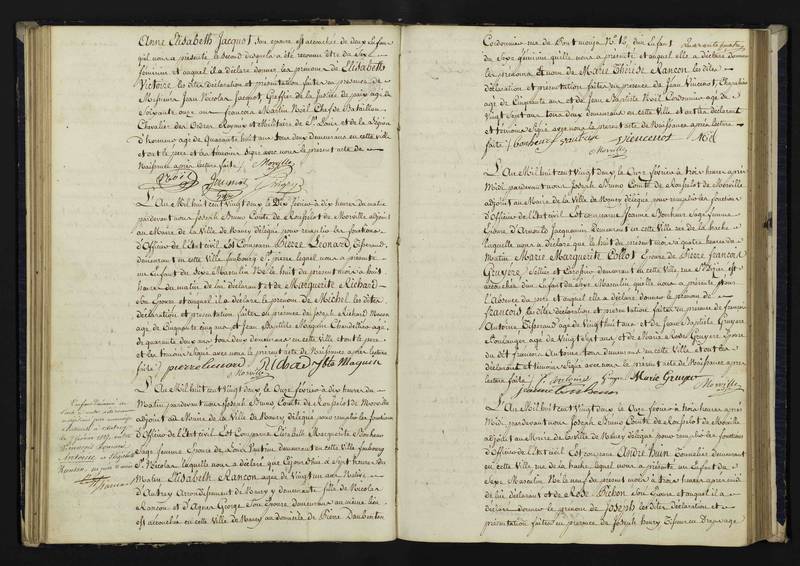 Anne Elisabeth Jacquot son épouse est accouchée de deux Enfans
qu'il nous a présenté, le second desquels a été reconnu être du Sexe
féminin et auquel il a déclaré donner les prénoms de Elisabeth
Victoire, les dites déclaration et présentation faites en présence de
Messieurs Jean Nicolas Jacquot, Greffier de la Justice de paix agé de
Soixante onze ans François Martin Noël Chef de Bataillon
Chevalier des Ordres Royaux et Militaires de St. Louis et de la Légion
d'honneur agé de Quarante huit ans tous deux demeurans en cette ville
et ont le père et les témoins signé avec nous le présent acte de
Naissance après lecture faite /. Morville
Noël Jacquot
L'An Mil huit cent Vingt deux le Dix février à dix heures du matin
pardevant nous Joseph Bruno Comte de Rousselot de Morville adjoint
au Maire de la Ville de Nancy délégué pour remplir les fonctions
d'Officier de l'Etat civil. Est Comparu Pierre Leonard, Tisserand
demeurant en cette Ville faubourg St. pierre lequel nous a présenté
un Enfant du Sexe Masculin Né le huit du présent mois à huit
heures du matin de lui déclarant et de Marguerite Richard
Son Epouse et auquel il a déclaré donner le prénom de Michel les dites
déclaration et présentation faites en présence de Joseph Richard Maçon
agé de Cinquante cinq ans et Jean Baptiste Maquin Chandellier agé
de quarante deux ans tous deux demeurans en cette ville et ont le père
et les témoins signé avec nous le présent acte de Naissance après lecture
faite /. pierre leonard Richard Jbte Maquin
Morville
L'An Mil huit cent Vingt deux le Onze février à dix heures du
Matin pardevant nous Joseph Bruno Comte de Rousselot de Morville
adjoint au Maire de la Ville de Nancy délégué pour remplir les fonctions
d'Officier de l'Etat civil. Est Comparue Elisabeth Marguerite Bonheur
Sage femme Epouse de Louis Vautrin demeurant en cette Ville faubourg
St. Nicolas laquelle nous a déclaré que Lejourd'hui à Sept heures du
Matin Elisabeth Rançon agée de Vingt un ans Native
d'Autrey Arrondissement de Nancy y demeurante fille de Nicolas
Rançon et d'Agnès George Son Epouse demeurans au même lieu
est accouchée en cette Ville de Nancy au domicile de Pierre Daubenton
Cordonnier rue du Pont mouja No. 16, d'un Enfant
Quarante quatre
du Sexe féminin qu'elle nous a présenté et auquel elle a déclaré donner
les prénoms et nom de Marie Thérèse Rançon les dites
déclaration et présentation faites en présence de Jean Vincenot, Charpentier
agé de Cinquante ans et de Jean Baptiste Noël Cordonnier agé de
Vingt Sept ans tous deux demeurans en cette Ville et ont la déclarante
et témoins signé avec nous le présent acte de Naissance après lecture
faite /. bonheur vautrin Viencenot Noël
Morville
L'An Mil huit cent Vingt deux le Onze février à trois heures après
Midi pardevant nous Joseph Bruno Comte de Rousselot de Morville
adjoint au Maire de la Ville de Nancy délégué pour remplir les fonctions
d'Officier de l'Etat civil. Est comparue Jeanne Bonheur Sage femme
Epouse d'Arnould Jacquemin demeurant en cette Ville rue de la hache
laquelle nous a déclaré que le huit du présent mois à quatre heures du
Matin Marie Marguerite Collot Epouse de Pierre françois
Gruyere, Sellier et Carossier demeurant en cette Ville rue St. Dizier est
accouchée d'un Enfant du Sexe Masculin qu'elle nous a présenté dans
l'absence du père et auquel elle a déclaré donner le prénom de
françois les dites déclaration et présentation faites en présence de françois
Antoine Tisserand agé de Vingt huit ans et de Jean Baptiste Gruyere
Boulanger agé de Vingt Sept ans et de Marie Gruyere Epouse
du dit françois Antoine tous demeurans en cette Ville et ont la
déclarante et témoins signé avec nous le présent acte de Naissance après
lecture faite /. f. Antoine Marie Gruyer
Morville
L'An Mil huit cent Vingt deux le Onze février à trois heures après
Midi, pardevant nous Joseph Bruno Comte de Rousselot de Morville
adjoint au Maire de la Ville de Nancy délégué pour remplir les fonctions
d'Officier de l'Etat civil. Est comparu André hun Tonnelier demeurant
en cette Ville rue de la hache, lequel nous a présenté un Enfant du
Sexe Masculin Né le neuf du présent mois à trois heures après midi
de lui déclarant et de Rose Pichon Son Epouse et auquel il a
déclaré donner le prénom de Joseph les dites déclaration et
présentation faites en présence de Joseph henry Tisseur en Draps agé